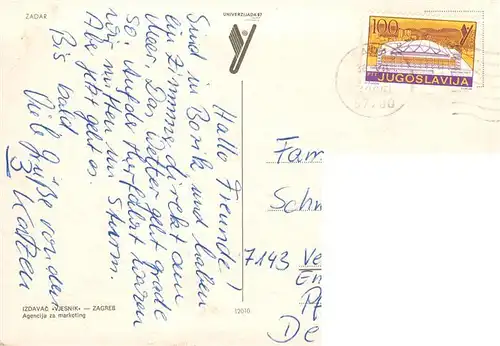 ZADAR
UNIVERZIJADA '87
100
PTT JUGOSLAVIJA
57700
Hallo Freunde!
Sind in Borik und haben
ein Zimmer direkt am
Meer. Das Wetter geht grade
so. Auf der Herfahrt waren
wir mitten im Sturm.
Aber jetzt geht es.
Bis bald
Viele Grüße von den
3 Katzen
Fam
Schn
7143 Ve
En
Pf
De
IZDAVAČ «VJESNIK» — ZAGREB
Agencija za marketing
12010